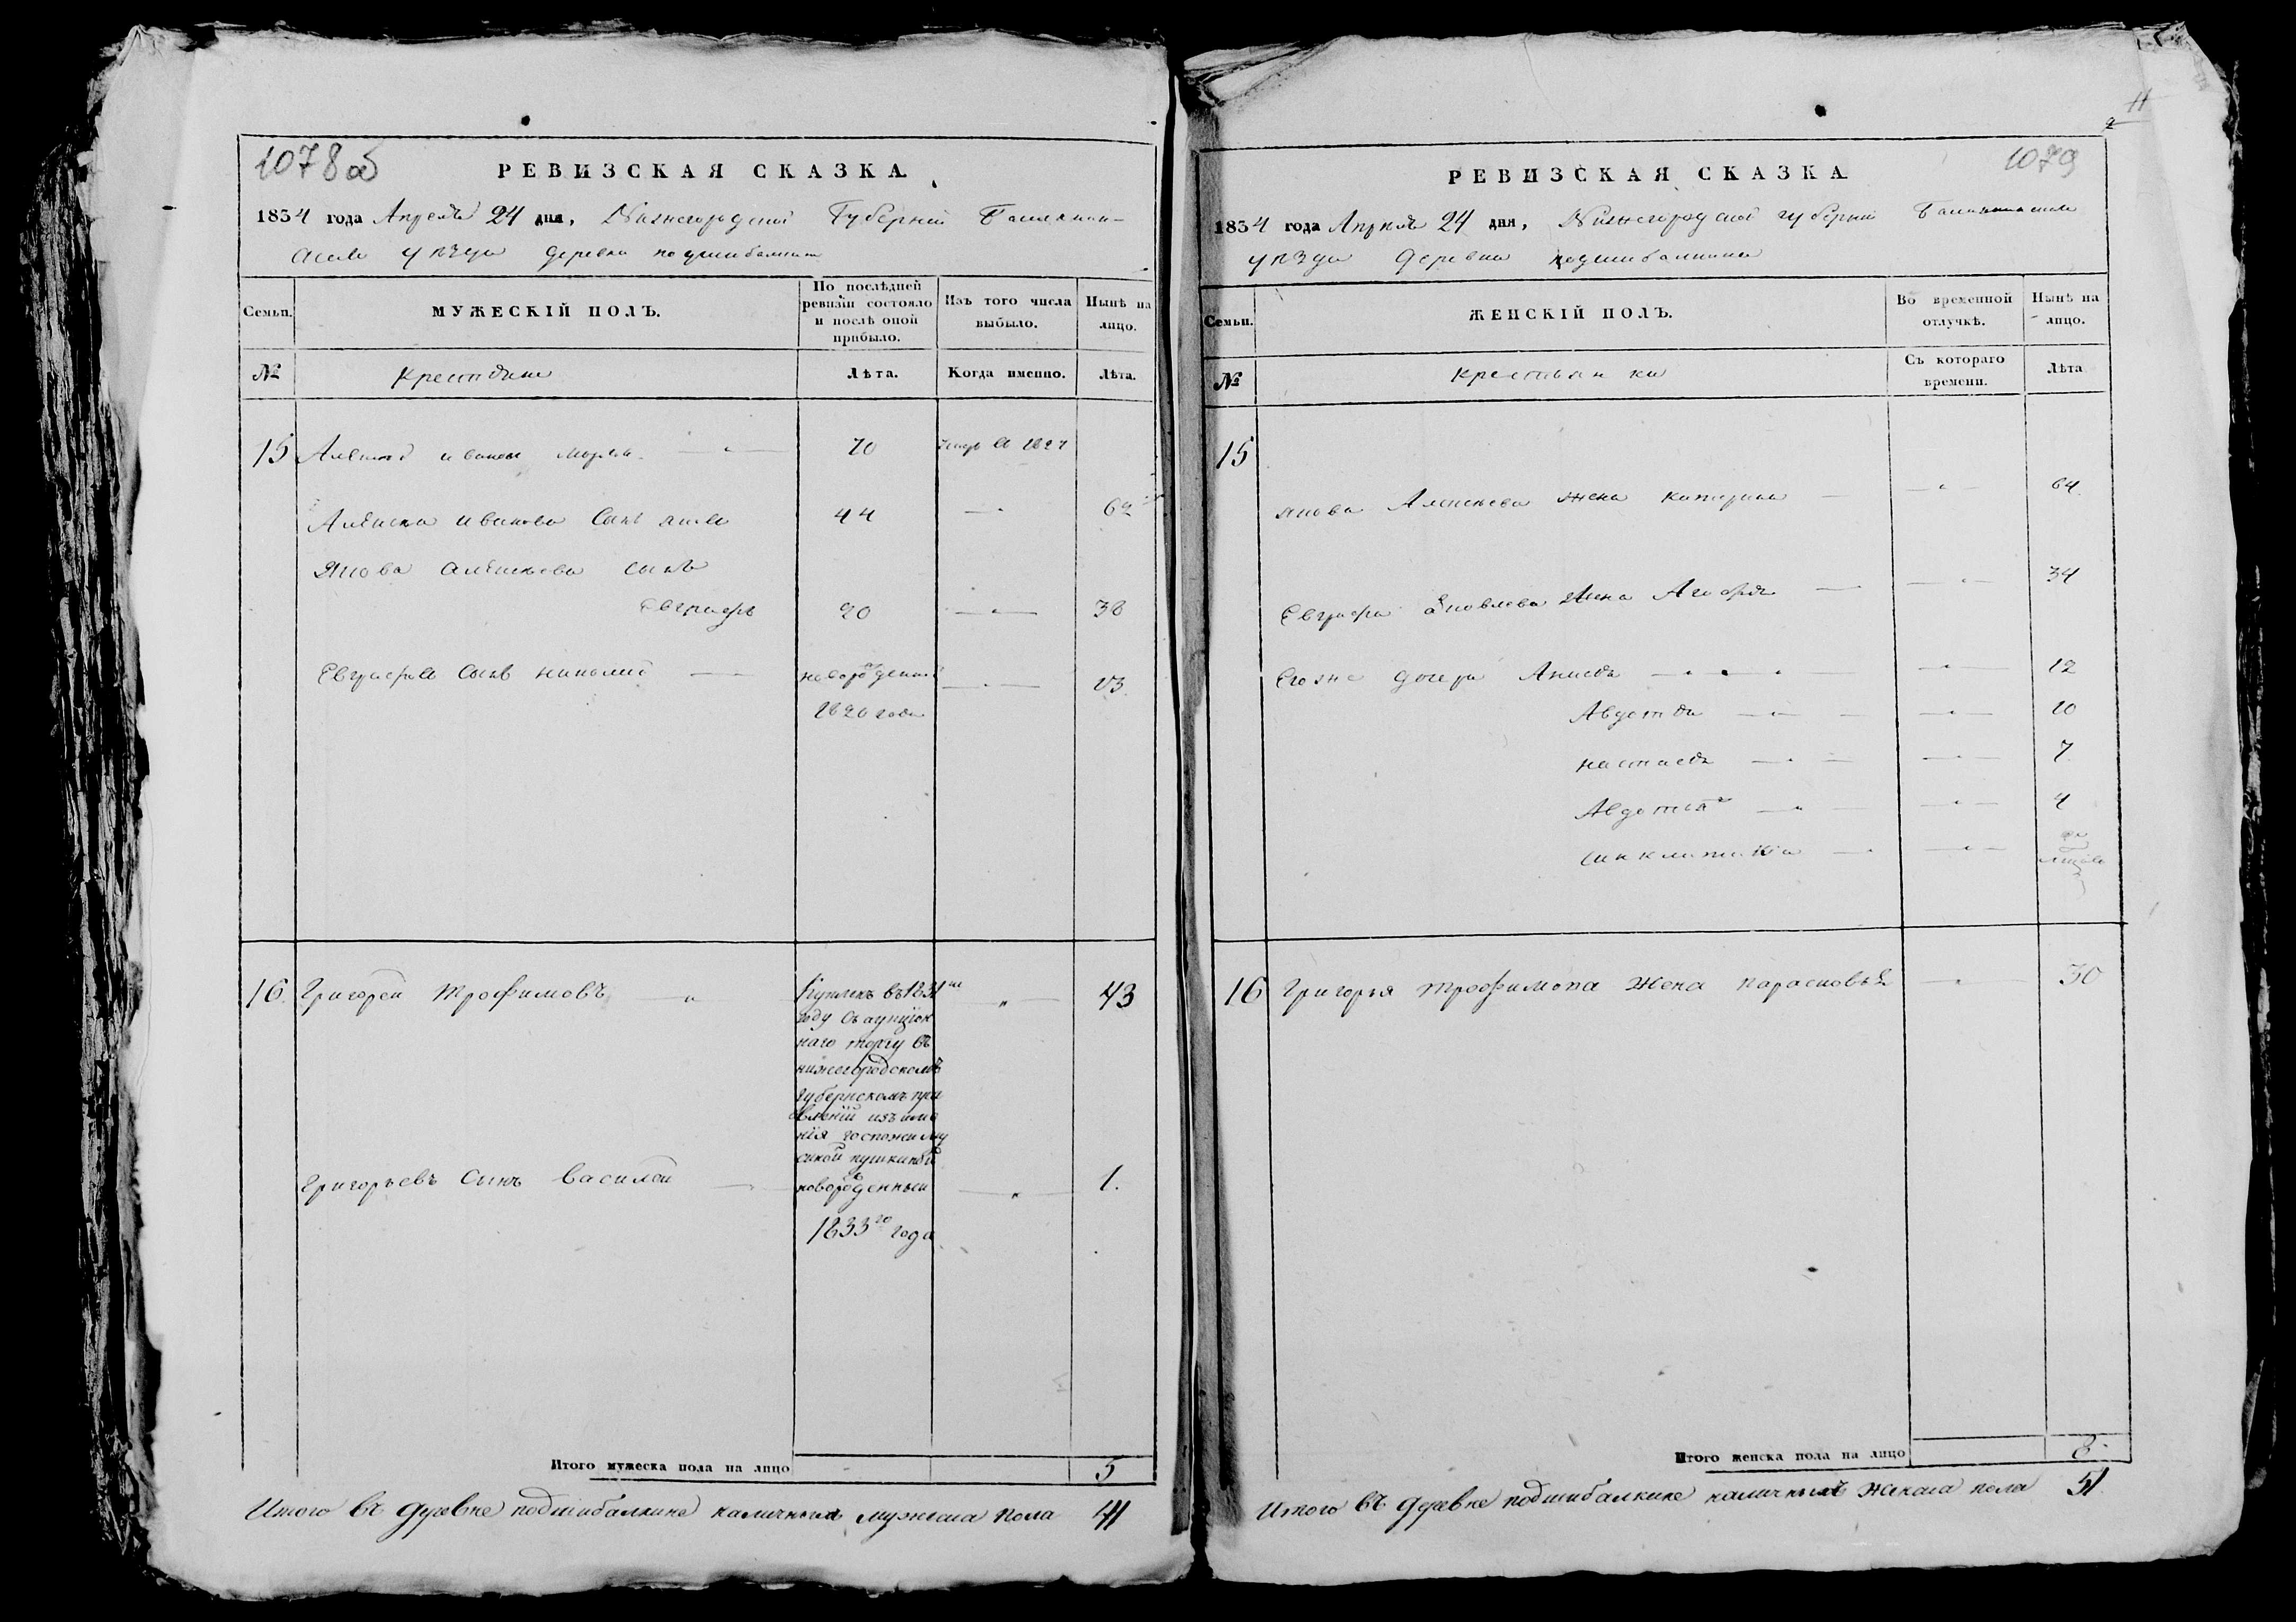 1078 об
РЕВИЗСКАЯ СКАЗКА.
1834 года Апреля 24 дня, Нижегородской Губерніи Балахнин-
скаго уѣзда деревни подшибалкины
Семьи.
МУЖЕСКІЙ ПОЛЪ.
По послѣдней
ревизіи состояло
и послѣ оной
прибыло.
Изъ того числа
выбыло.
Нынѣ на
лицо.
№
Крестьяне
Лѣта.
Когда именно.
Лѣта.
15
Алексей иванов
70
умръ въ 1827
Алексея иванова сынъ яковъ
44
62
Якова алексеева сынъ
Евграфъ
20
38
Евграфовъ сынъ николай
новорожденный
1820 года
13
16
Григорей трофимовъ
Купленъ въ 1831мъ
году съ аукціон
наго торгу въ
нижегородскомъ
губернскомъ пра
вленіи изъ име
нія госпожи му
синой пушкиной
43
Григорьевъ сынъ василей
новорожденный
1833го года
1.
Итого мужеска пола на лицо
5
Итого въ деревне подшибалкине наличныхъ мужеска пола 41
11
1079
РЕВИЗСКАЯ СКАЗКА
1834 года Апреля 24 дня, Нижегородской губерніи Балахнинскаго
уѣзда деревни подшибалкины
Семьи.
ЖЕНСКІЙ ПОЛЪ.
Во временной
отлучкѣ.
Нынѣ на
лицо.
№
крестьянки
Съ котораго
времени.
Лѣта
15
якова Алексеева жена катерина
64
Евграфа яковлева жена Агафья
34
Его же дочери Анисья
12
Авдотья
10
настасья
7
Авдотья 2
4
синклитикія
16
Григорья трофимова жена парасковья
30
Итого женска пола на лицо
8
Итого въ деревне подшибалкине наличныхъ женска пола 51.